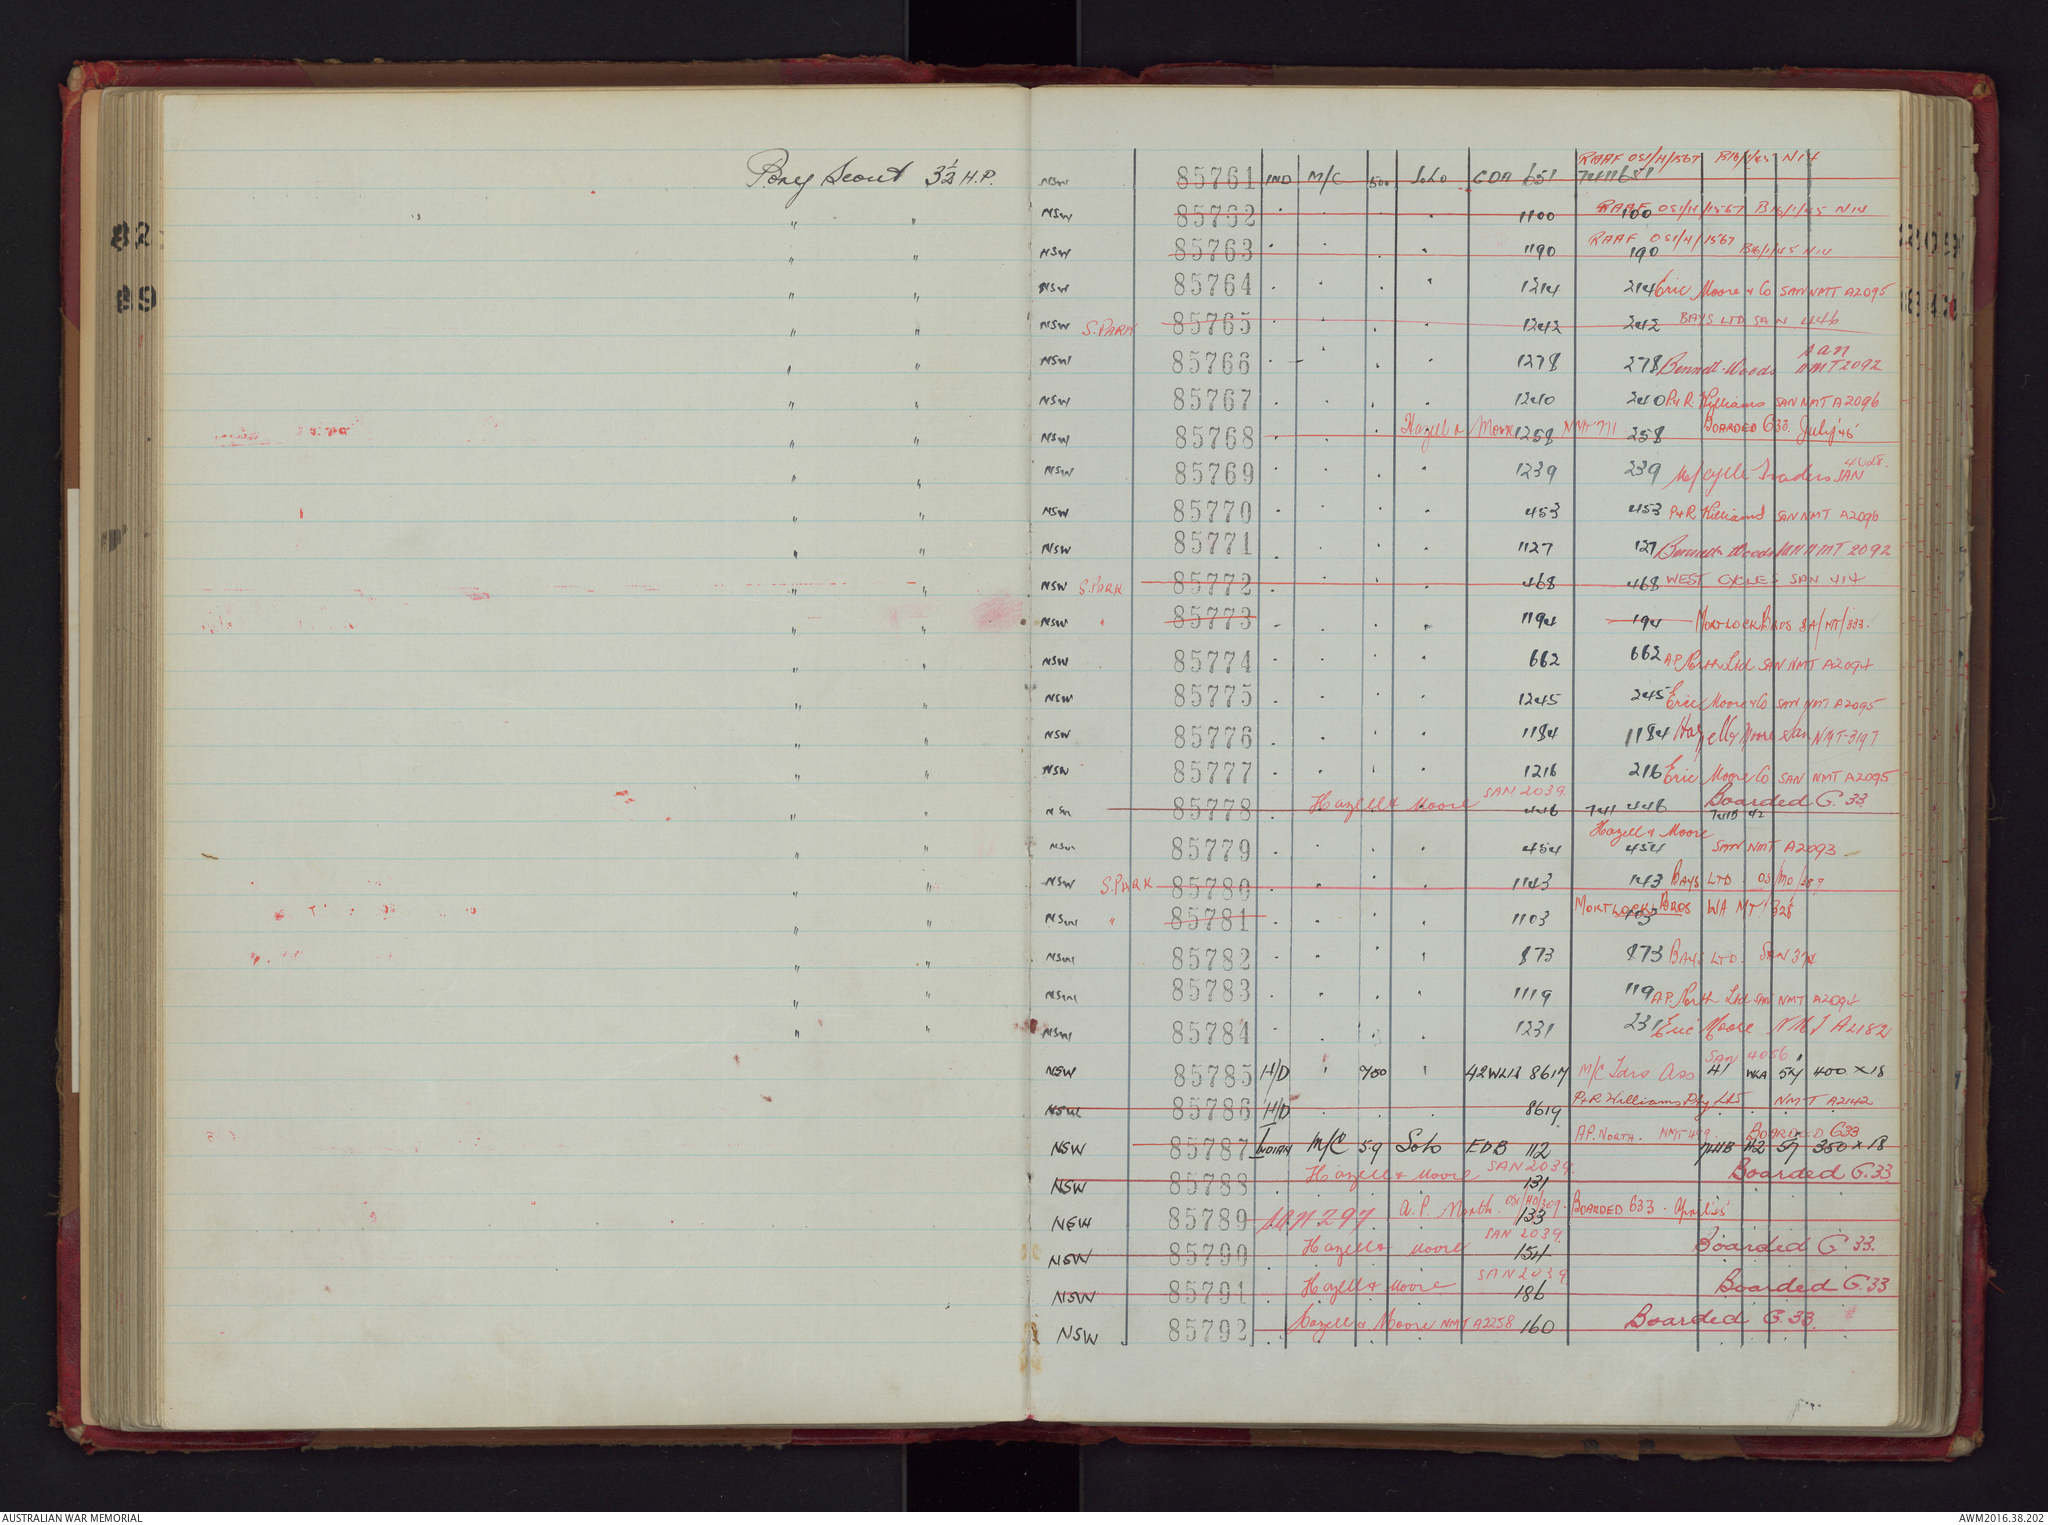 Pony Scout 3½ H.P. NSW 85761 IND M/C 500 Solo GDA 651 741/1651 RAAF OS1/H/1567 B16/1/45 N14
" " NSW 85762 . . . . 1100 100 RAAF OS1/H/1567 B16/1/45 N14
" " NSW 85763 . . . . 1190 190 RAAF OS1/H/1567 B16/1/45 N14
" " NSW 85764 . . . . 1214 214 Eric Moore & Co SAN NMT A2095
" " NSW S.PARK 85765 . . . . 1242 242 BAYS LTD SAN 446
" " NSW 85766 . . . . 1278 278 Bennett Woods SAN NMT 2092
" " NSW 85767 . . . . 1240 240 P&R Williams SAN NMT A2096
" " NSW 85768 . . . . Hazell & Moore 1258 NMT 711 258 BOARDED G33. July '45
" " NSW 85769 . . . . 1239 239 M/cycle Traders SAN 4028.
" " NSW 85770 . . . . 453 453 P&R Williams SAN NMT A2096
" " NSW 85771 . . . . 1127 127 Bennett Woods SAN NMT 2092
" " NSW S.PARK 85772 . . . . 468 468 WEST CYCLES SAN 414
" " NSW " 85773 . . . . 1194 194 MORTLOCK BROS SA/MT/333.
" " NSW 85774 . . . . 662 662 A.P. North Ltd SAN NMT A2094
" " NSW 85775 . . . . 1245 245 Eric Moore & Co SAN NMT A2095
" " NSW 85776 . . . . 1184 1184 Hazell & Moore San NMT-3197
" " NSW 85777 . . . . 1216 216 Eric Moore Co SAN NMT A2095
" " NSW 85778 Hazell & Moore SAN 2039. 446 741 446 Boarded G.33 741B 42
" " NSW 85779 . . . . 454 454 Hazell & Moore SAN NMT A2093
" " NSW S.PARK 85780 . . . . 1143 143 BAYS LTD. OS/MO/387
" " NSW " 85781 . . . . 1103 103 MORTLOCK BROS WA MT 328
" " NSW 85782 . . . . 873 873 BAYS LTD. SAN 374
" " NSW 85783 . . . . 1119 119 A.P. North Ltd SAN NMT A2094
" " NSW 85784 . . . . 1231 231 Eric Moore NMT A2182
NSW 85785 H/D " 750 " 42WLA 8617 M/C Tdrs Ass SAN 4056 41 WLA 54" 400 x 18
NSW 85786 H/D . . . 8619 P&R Williams Pty Ltd NMT A2142
NSW 85787 INDIAN M/C 5.9 Solo EDB 112 A.P. NORTH. NMT-499 BOARDED G33 741B 42 57 350 x 18
NSW 85788 Hazell & Moore SAN 2039. 131 Boarded G.33
NSW 85789 SAN 297 A.P. North. OS1/MO/307. 133 BOARDED G33. April '45
NSW 85790 Hazell & Moore SAN 2039. 154 Boarded G 33.
NSW 85791 Hazell & Moore SAN 2039 186 Boarded G.33
NSW 85792 Hazell & Moore NMT A2258 160 Boarded G.33.
AUSTRALIAN WAR MEMORIAL AWM2016.38.202